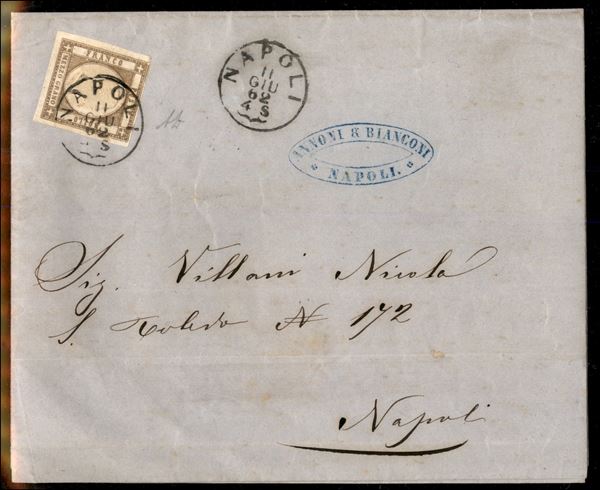 FRANCO
MEZZO GRANO
NAPOLI
11
GIU
62
4 S
NAPOLI
11
GIU
62
4 S
ANNONI & BIANCONI
NAPOLI.
Sig. Villani Nicola
S. Toledo N 172
Napoli